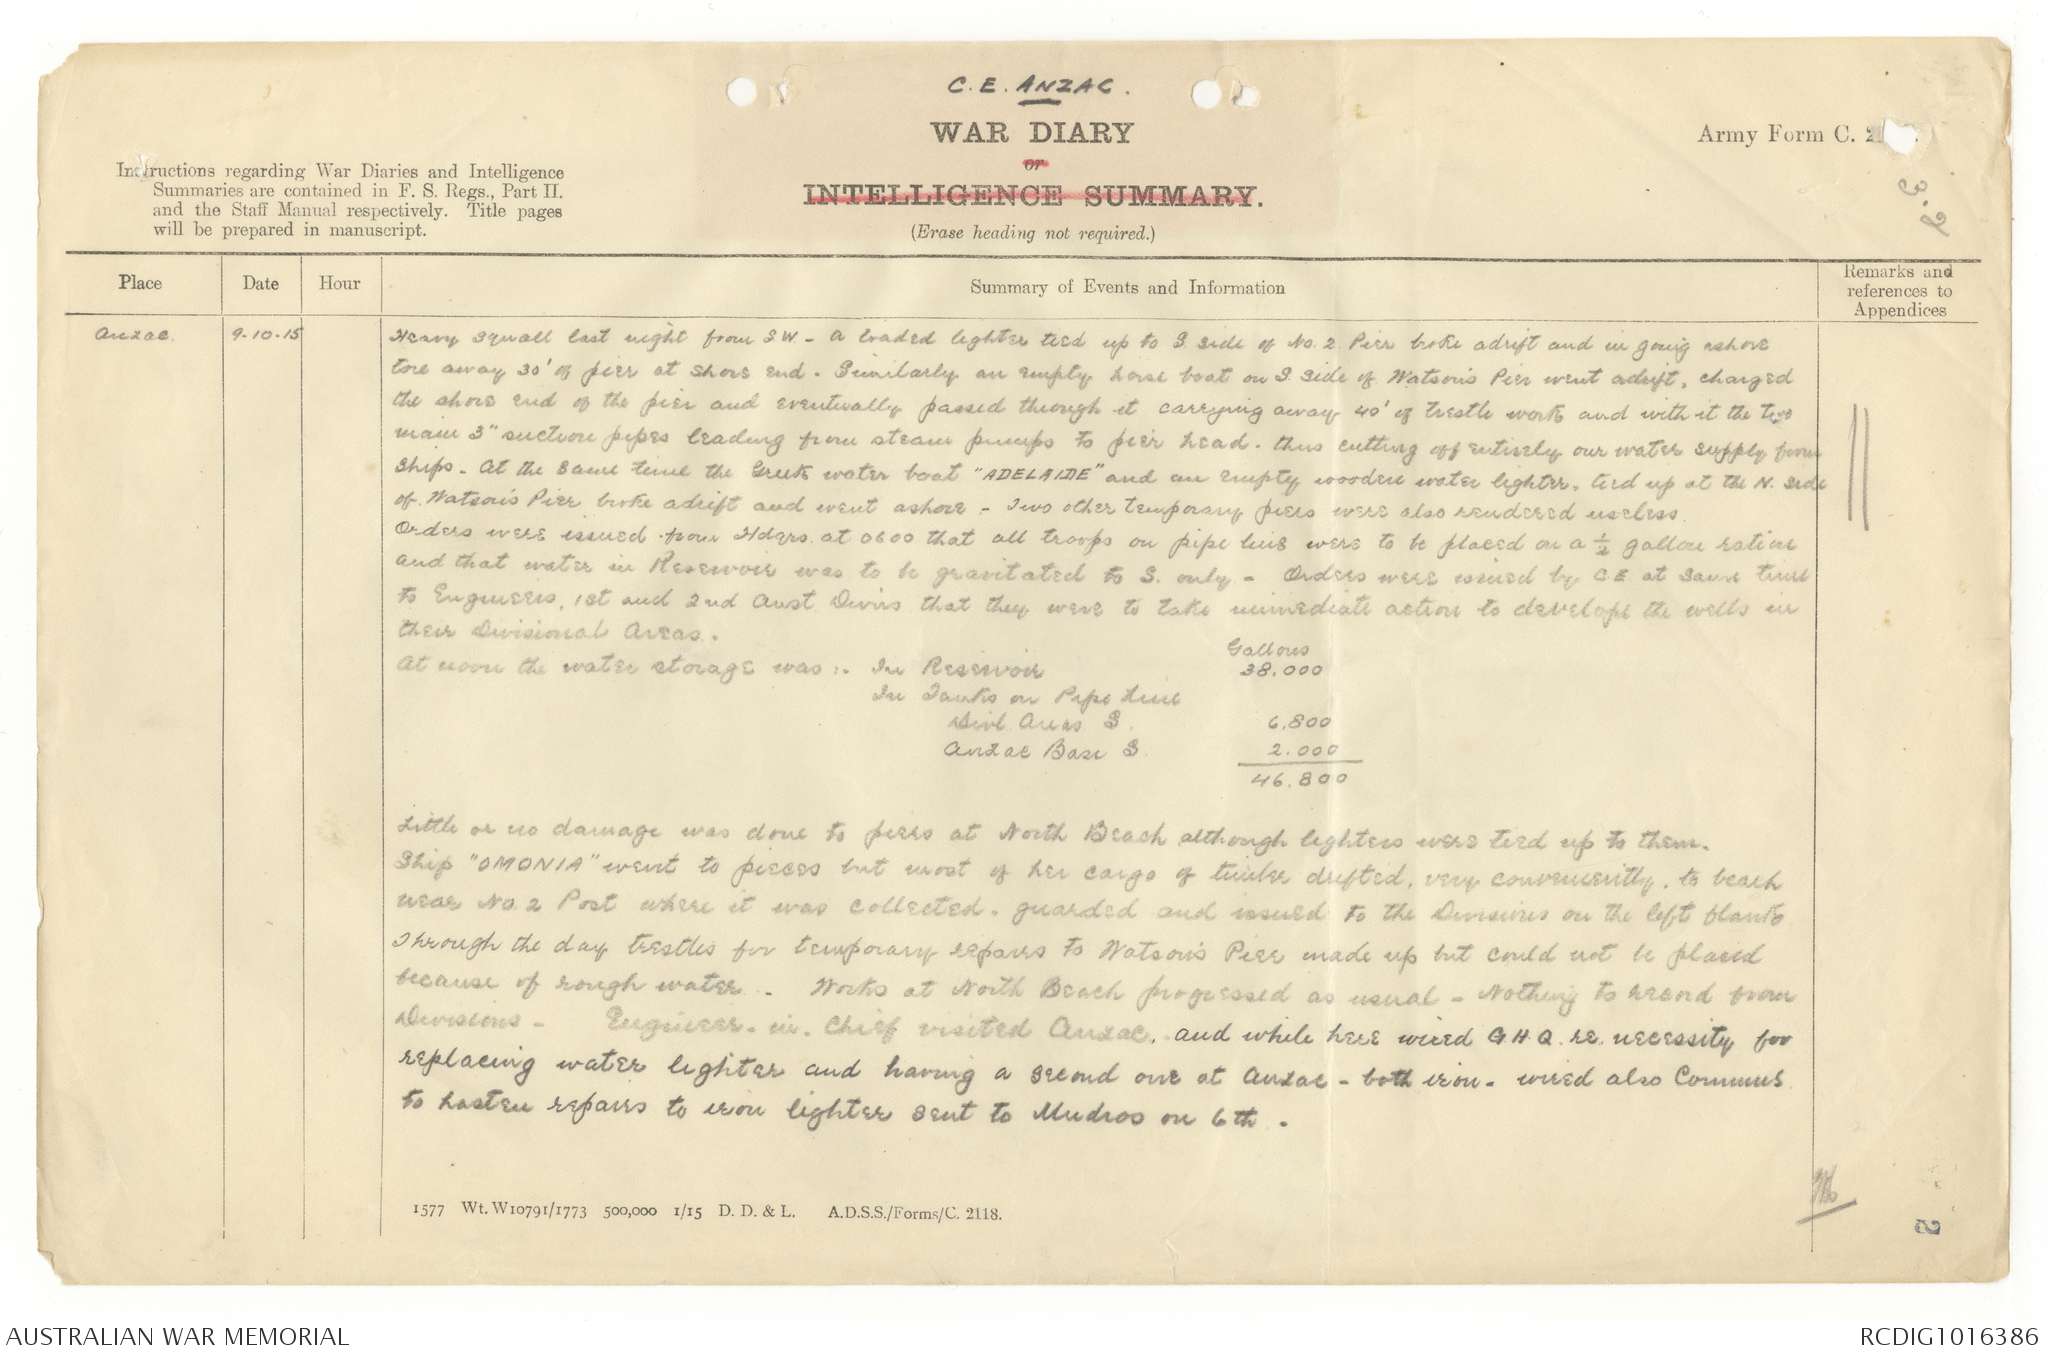 C. E. ANZAC.
WAR DIARY
or
INTELLIGENCE SUMMARY.
(Erase heading not required.)
Army Form C. 21
Instructions regarding War Diaries and Intelligence
Summaries are contained in F. S. Regs., Part II.
and the Staff Manual respectively. Title pages
will be prepared in manuscript.
3.2
Place Date Hour Summary of Events and Information Remarks and references to Appendices
Anzac. 9.10.15 Heavy squall last night from S.W. - A loaded lighter tied up to S. side of No. 2 Pier broke adrift and in going ashore
tore away 30' of pier at shore end. Similarly an empty horse boat on S. side of Watson's Pier went adrift, charged
the shore end of the pier and eventually passed through it carrying away 40' of trestle work and with it the two
main 3" suction pipes leading from steam pumps to pier head. thus cutting off entirely our water supply from
ships. At the same time the Greek water boat "ADELAIDE" and an empty wooden water lighter, tied up at the N. side
of Watson's Pier broke adrift and went ashore - Two other temporary piers were also rendered useless.
Orders were issued from Hdqrs. at 0600 that all troops on pipe line were to be placed on a ½ gallon ration
and that water in Reservoir was to be gravitated to S. only - Orders were issued by C.E. at same time
to Engineers, 1st and 2nd Aust Divns that they were to take immediate action to develope the wells in
their Divisional Areas.
Gallons
At noon the water storage was :- In Reservoir 38.000
In Tanks on Pipe Line
Divl Areas S. 6.800
Anzac Base S. 2.000
46.800
Little or no damage was done to piers at North Beach although lighters were tied up to them.
Ship "OMONIA" went to pieces but most of her cargo of timber drifted, very conveniently, to beach
near No. 2 Post where it was collected, guarded and issued to the Divisions on the left flank
Through the day trestles for temporary repairs to Watson's Pier made up but could not be placed
because of rough water. - Works at North Beach progressed as usual - Nothing to record from
Divisions - Engineer-in-Chief visited Anzac, and while here wired G.H.Q. re. necessity for
replacing water lighter and having a second one at Anzac - both iron - wired also Communs
to hasten repairs to iron lighter sent to Mudros on 6th.
1577 Wt. W10791/1773 500,000 1/15 D. D. & L. A.D.S.S./Forms/C. 2118.
5
AUSTRALIAN WAR MEMORIAL
RCDIG1016386